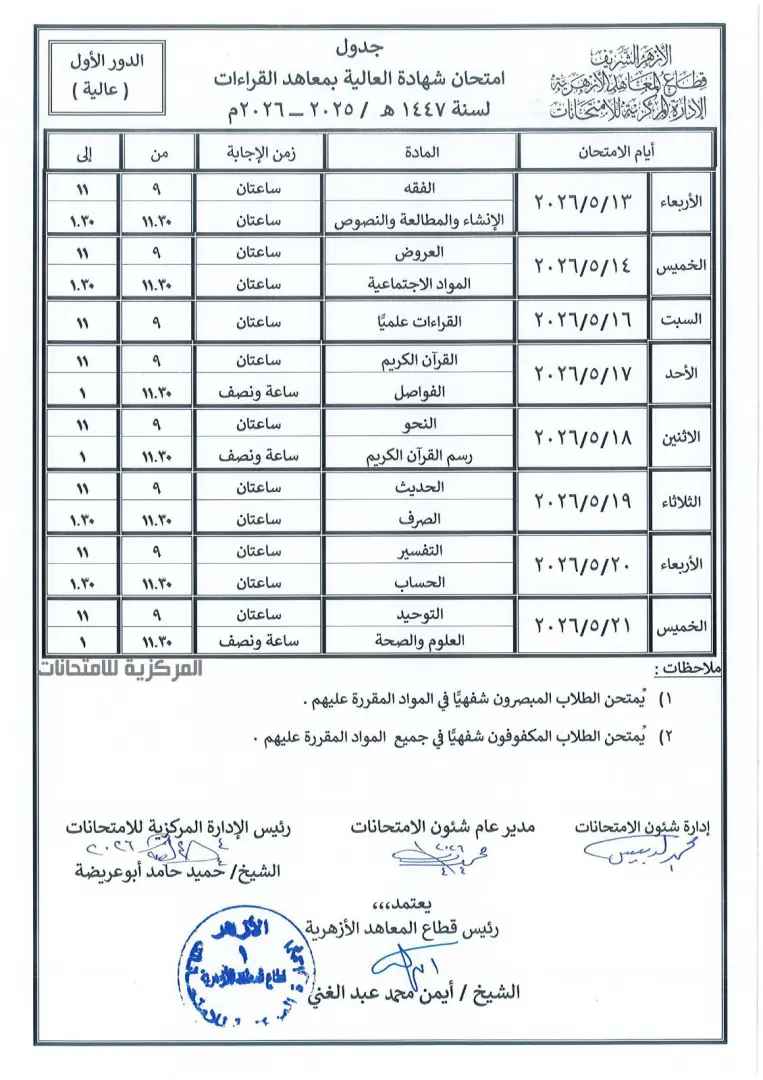 الأزهر الشريف
قطاع المعاهد الأزهرية
الإدارة المركزية للامتحانات
جدول
امتحان شهادة العالية بمعاهد القراءات
لسنة ١٤٤٧ هـ / ٢٠٢٥ ــ ٢٠٢٦م
الدور الأول
( عالية )
أيام الامتحان المادة زمن الإجابة من إلى
الأربعاء ٢٠٢٦/٥/١٣ الفقه ساعتان ٩ ١١
الإنشاء والمطالعة والنصوص ساعتان ١١.٣٠ ١.٣٠
الخميس ٢٠٢٦/٥/١٤ العروض ساعتان ٩ ١١
المواد الاجتماعية ساعتان ١١.٣٠ ١.٣٠
السبت ٢٠٢٦/٥/١٦ القراءات علميًا ساعتان ٩ ١١
الأحد ٢٠٢٦/٥/١٧ القرآن الكريم ساعتان ٩ ١١
الفواصل ساعة ونصف ١١.٣٠ ١
الاثنين ٢٠٢٦/٥/١٨ النحو ساعتان ٩ ١١
رسم القرآن الكريم ساعة ونصف ١١.٣٠ ١
الثلاثاء ٢٠٢٦/٥/١٩ الحديث ساعتان ٩ ١١
الصرف ساعتان ١١.٣٠ ١.٣٠
الأربعاء ٢٠٢٦/٥/٢٠ التفسير ساعتان ٩ ١١
الحساب ساعتان ١١.٣٠ ١.٣٠
الخميس ٢٠٢٦/٥/٢١ التوحيد ساعتان ٩ ١١
العلوم والصحة ساعة ونصف ١١.٣٠ ١
المركزية للامتحانات
ملاحظات :
١) يُمتحن الطلاب المبصرون شفهيًا في المواد المقررة عليهم .
٢) يُمتحن الطلاب المكفوفون شفهيًا في جميع المواد المقررة عليهم .
إدارة شئون الامتحانات
مدير عام شئون الامتحانات
رئيس الإدارة المركزية للامتحانات
الشيخ/ حميد حامد أبوعريضة
يعتمد،،،
رئيس قطاع المعاهد الأزهرية
الشيخ / أيمن محمد عبد الغني
الأزهر
١
قطاع المعاهد الأزهرية